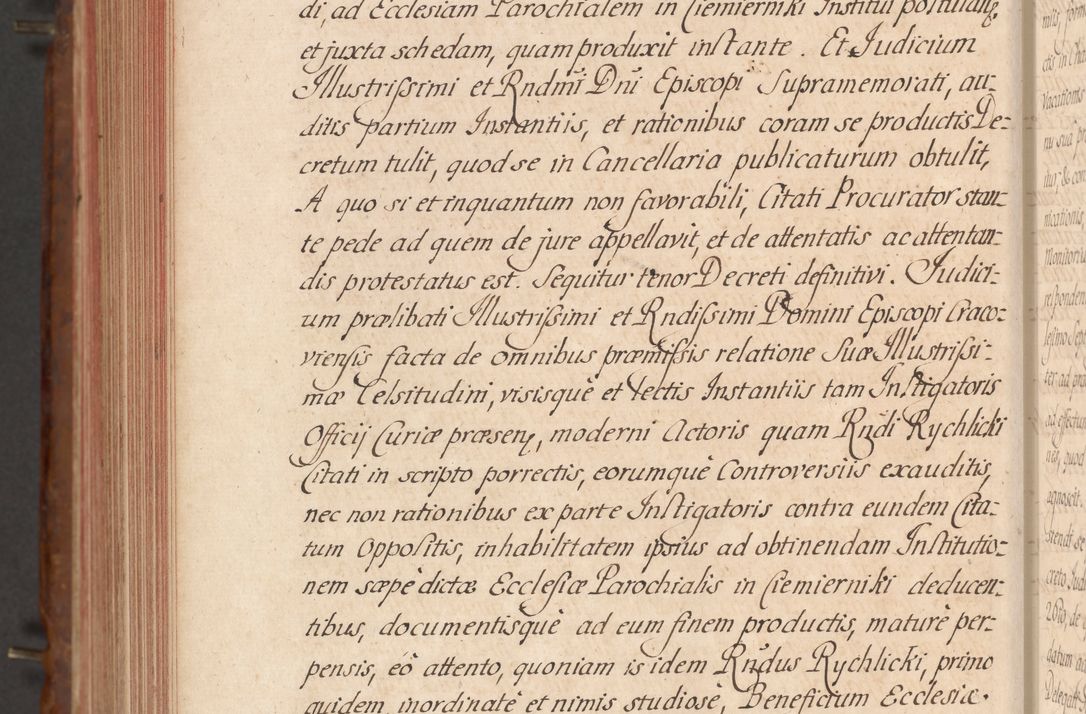 di, ad Ecclesiam Parochialem in Ciemierniki Institui postulans,
et juxta schedam, quam produxit instante. Et Judicium
Illustrissimi et Rndmi Dni Episcopi Supramemorati, au-
ditis partium Instantiis, et rationibus coram se productis De-
cretum tulit, quod se in Cancellaria publicaturum obtulit,
A quo si et inquantum non favorabili, Citati Procurator stan-
te pede ad quem de jure appellavit, et de attentatis ac attentan-
dis protestatus est. Sequitur tenor Decreti definitivi. Judici-
um prælibati Illustrissimi et Rndissimi Domini Episcopi Craco-
viensis facta de omnibus præmissis relatione Suæ Illustrissi-
mæ Celsitudini, visisquè et lectis Instantiis tam Instigatoris
Officij Curiæ præsent, moderni Actoris quam Rndi Rychlicki
Citati in scripto porrectis, eorumquè Controversiis exauditis,
nec non rationibus ex parte Instigatoris contra eundem Cita-
tum Oppositis, inhabilitatem ipsius ad obtinendam Institutio-
nem sæpè dictæ Ecclesiæ Parochialis in Ciemierniki deducen-
tibus, documentisquè ad eum finem productis, maturè per-
pensis, eô attento, quoniam is idem Rndus Rychlicki, primo
quidem inordinatè et nimis studiosè, Beneficium Ecclesiæ